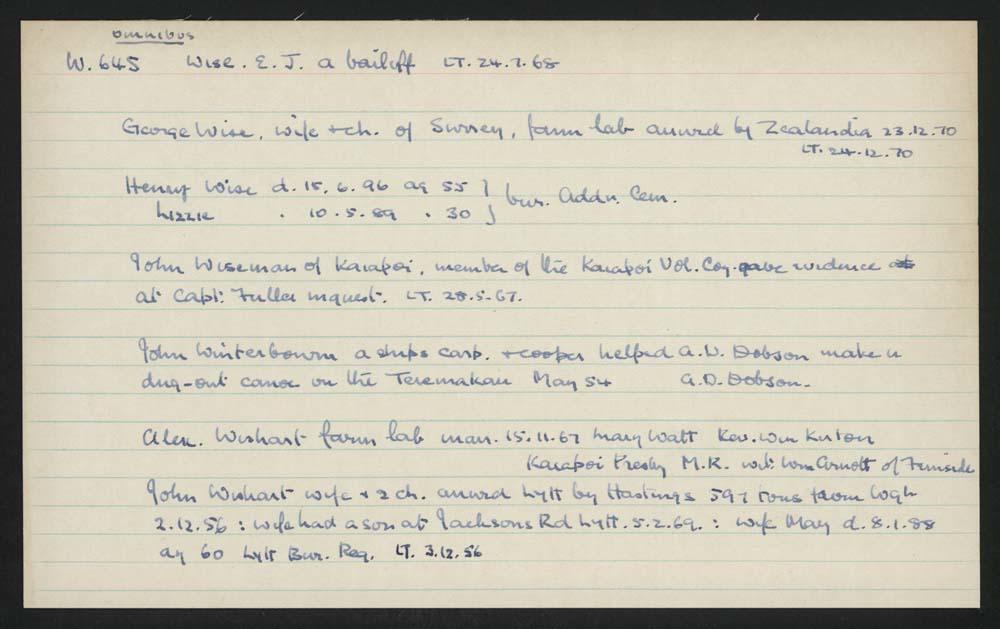 omnibus
W. 645 Wise. E. J. a bailiff LT. 24.7.68
George Wise, wife + ch. of Surrey, farm lab arrived by Zealandia 23.12.70
LT. 24.12.70
Henry Wise d. 15.6.96 ag 55 } bur. Addn. Cem.
Lizzie . 10.5.89 . 30 }
John Wiseman of Kaiapoi, member of the Kaiapoi Vol. Coy. gave evidence
at Capt. Fuller inquest. LT. 28.5.67.
John Winterbourn a ships carp. + cooper helped A.D. Dobson make a
dug-out canoe on the Teremakau May 54 A.D. Dobson.
Alex. Wishart farm lab marr. 15.11.67 Mary Watt Rev. Wm Kirton
Kaiapoi Presby M.R. wit: Wm Arnott of Fernside
John Wishart wife + 2 ch. arrived Lytt by Hastings 597 tons from Wgtn
2.12.56 : wife had a son at Jacksons Rd Lytt. 5.2.69. : wife May d. 8.1.88
ag 60 Lytt Bur. Reg. LT. 3.12.56